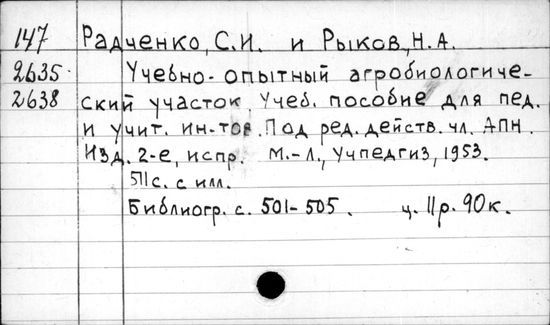 147 Радченко, С.И. и Рыков, Н.А.
2635 Учебно-опытный агробиологиче-
2638 ский участок. Учеб. пособие для пед.
и учит. ин-тов. Под ред. действ. чл. АПН.
Изд. 2-е, испр. М.-Л., Учпедгиз, 1953.
511с. с илл.
Библиогр. с. 501-505. ц. 11р. 90к.